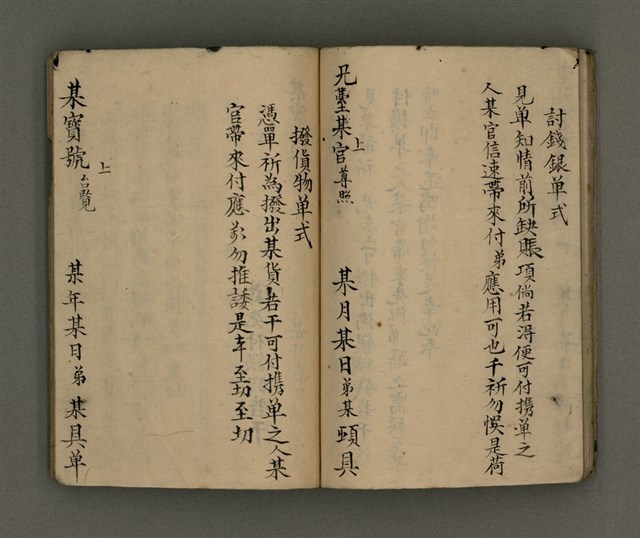 討錢銀单式
見单知情前所缺賬項倘若淂便可付携单之
人某官信速帶來付弟應用可也千祈勿悞是荷
上
兄臺某官尊照 某月某日弟某頓具
撥貨物单式
憑單祈為撥出某貨若干可付携单之人某
官帶來付應萬勿推諉是幸至切至切
上
某寶號台覽 某年某日弟某具单